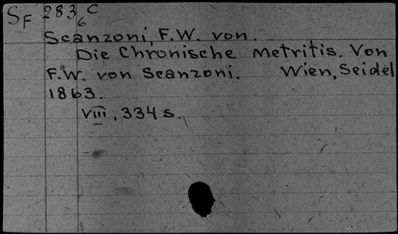 SF 283 C
6
Scanzoni, F.W. von.
Die Chronische Metritis. Von
F.W. von Scanzoni. Wien, Seidel
1863.
VIII, 334 s.